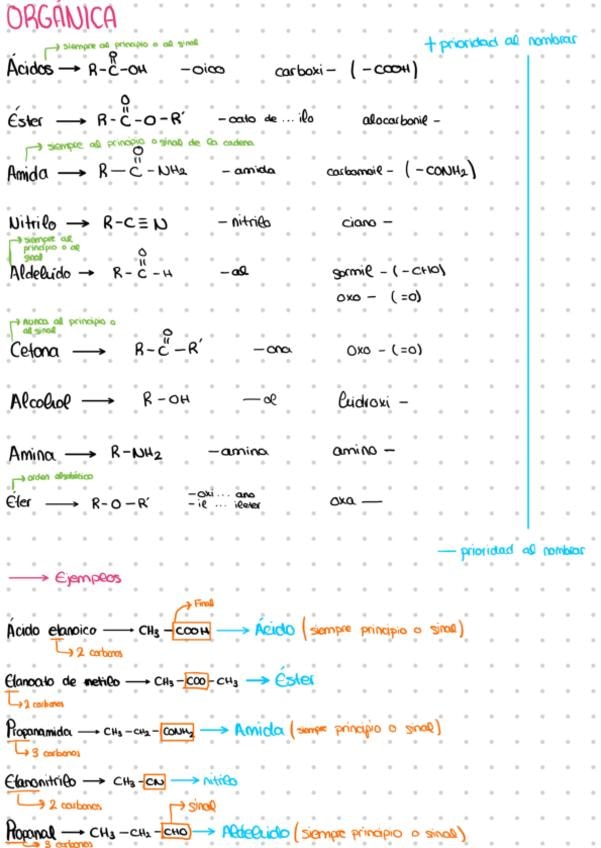 ORGÁNICA
siempre al principio o al final
+ prioridad al nombrar
Ácidos → R-C-OH -oico carboxi- (-COOH)
O
Éster → R-C-O-R' -oato de ... ilo alocarbonil-
O
siempre al principio o final de la cadena
Amida → R-C-NH2 -amida carbamoil- (-CONH2)
O
Nitrilo → R-C≡N -nitrilo ciano-
siempre al
principio o al
final
Aldehído → R-C-H -al formil- (-CHO)
O
oxo- (=O)
nunca al principio o
al final
Cetona → R-C-R' -ona oxo- (=O)
O
Alcohol → R-OH -ol hidroxi-
Amina → R-NH2 -amina amino-
orden alfabético
Éter → R-O-R' -oxi... ano oxa-
-il ... iléter
- prioridad al nombrar
→ Ejemplos
Final
Ácido etanoico → CH3-COOH → Ácido (siempre principio o final)
2 carbonos
Etanoato de metilo → CH3-COO-CH3 → Éster
2 carbonos
Propanamida → CH3-CH2-CONH2 → Amida (siempre principio o final)
3 carbonos
Etanonitrilo → CH3-CN → nitrilo
2 carbonos
final
Propanal → CH3-CH2-CHO → Aldehído (siempre principio o final)
3 carbonos